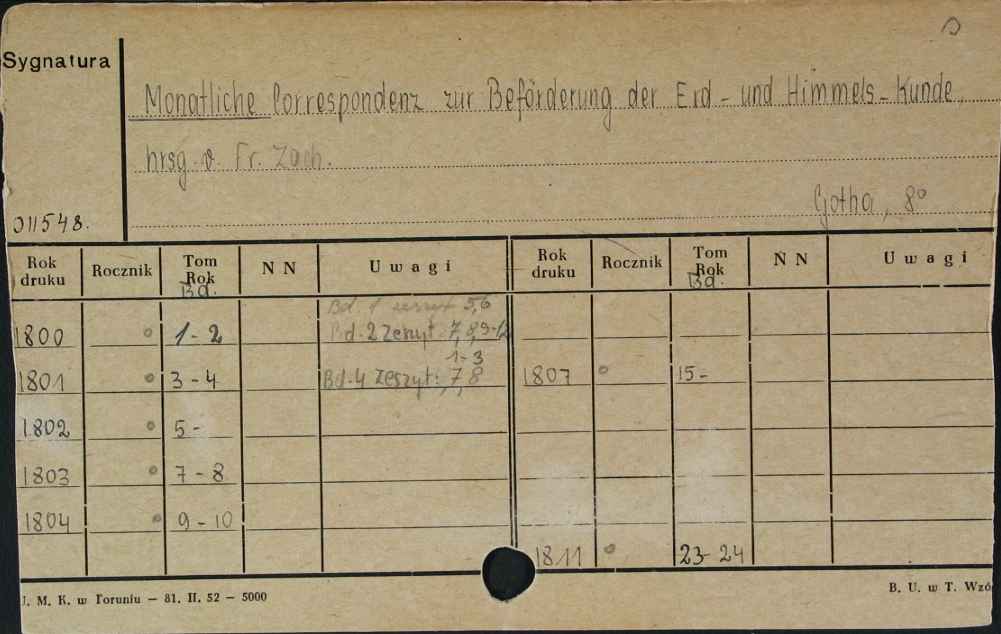 Sygnatura
Monatliche Correspondenz zür Beförderung der Erd- und Himmels-Kunde,
hrsg. v. Fr. Zach.
Gotha, 8°
011548.
Rok druku Rocznik Tom Rok Bd. N N Uwagi Rok druku Rocznik Tom Rok Bd. N N Uwagi
Bd. 1 zeszyt 5,6
1800 1-2 Bd. 2 Zeszyt. 7,8,9-12
1-3
1801 3-4 Bd. 4 Zeszyt: 7,8 1807 15-
1802 5-
1803 7-8
1804 9-10
1811 23-24
U. M. K. w Toruniu — 81. II. 52 — 5000 B. U. w T. Wzó